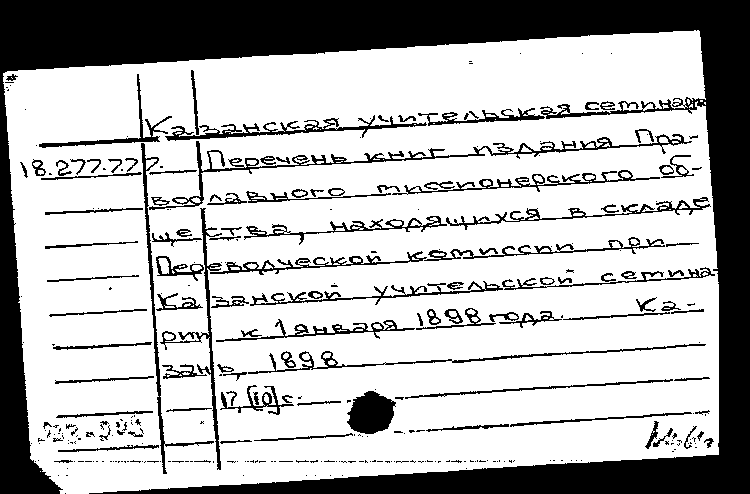 Казанская учительская семинария
18.277.7.27. Перечень книг издания Пра-
вославного миссионерского об-
щества, находящихся в складе
Переводческой комиссии при
Казанской учительской семина-
рии к 1 января 1898 года. Ка-
зань, 1898.
17, [10] с.